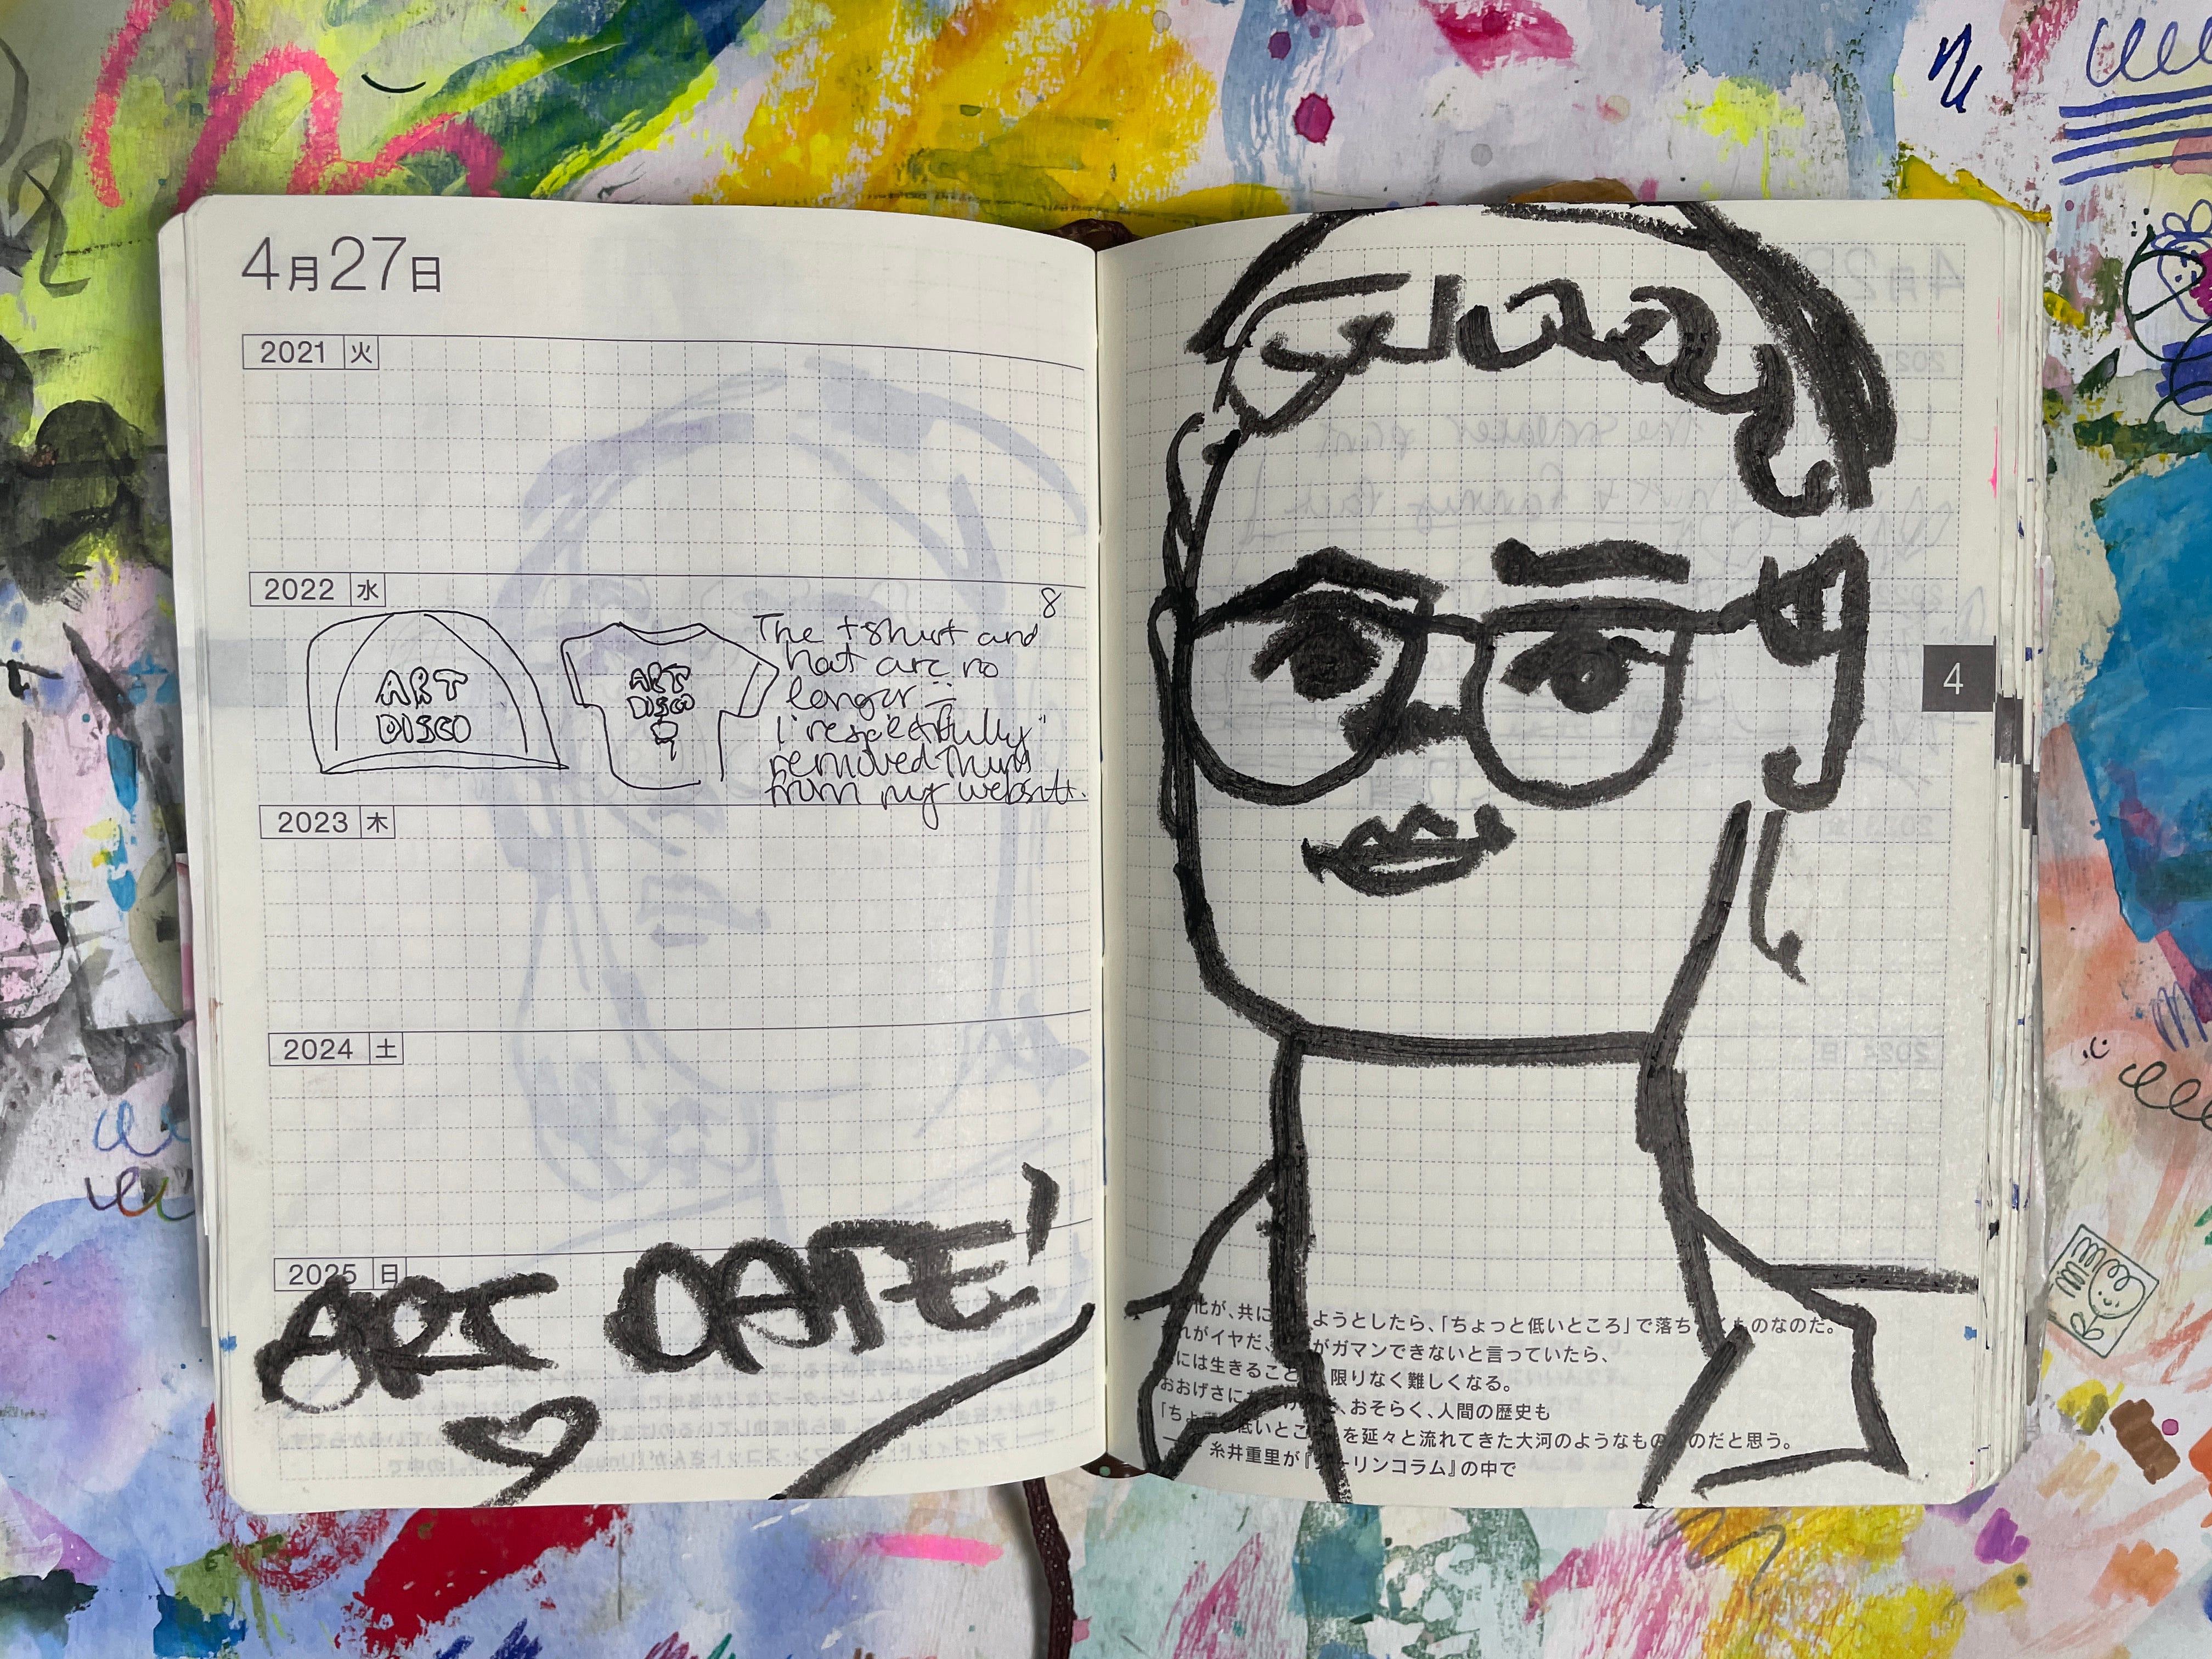 4月27日
2021 火
2022 水
8
ART
DISCO
ART
DISCO
The t-shirt and
hat are no
longer
I "respectfully"
removed them
from my website.
2023 木
2024 土
2025 日
ART DATE!
4
化が、共に ようとしたら、「ちょっと低いところ」で落ち ものなのだ。
れがイヤだ、 がガマンできないと言っていたら、
には生きること 限りなく難しくなる。
おおげさに 、おそらく、人間の歴史も
「ちょっと低いところ」を延々と流れてきた大河のようなものなのだと思う。
── 糸井重里が『ダーリンコラム』の中で